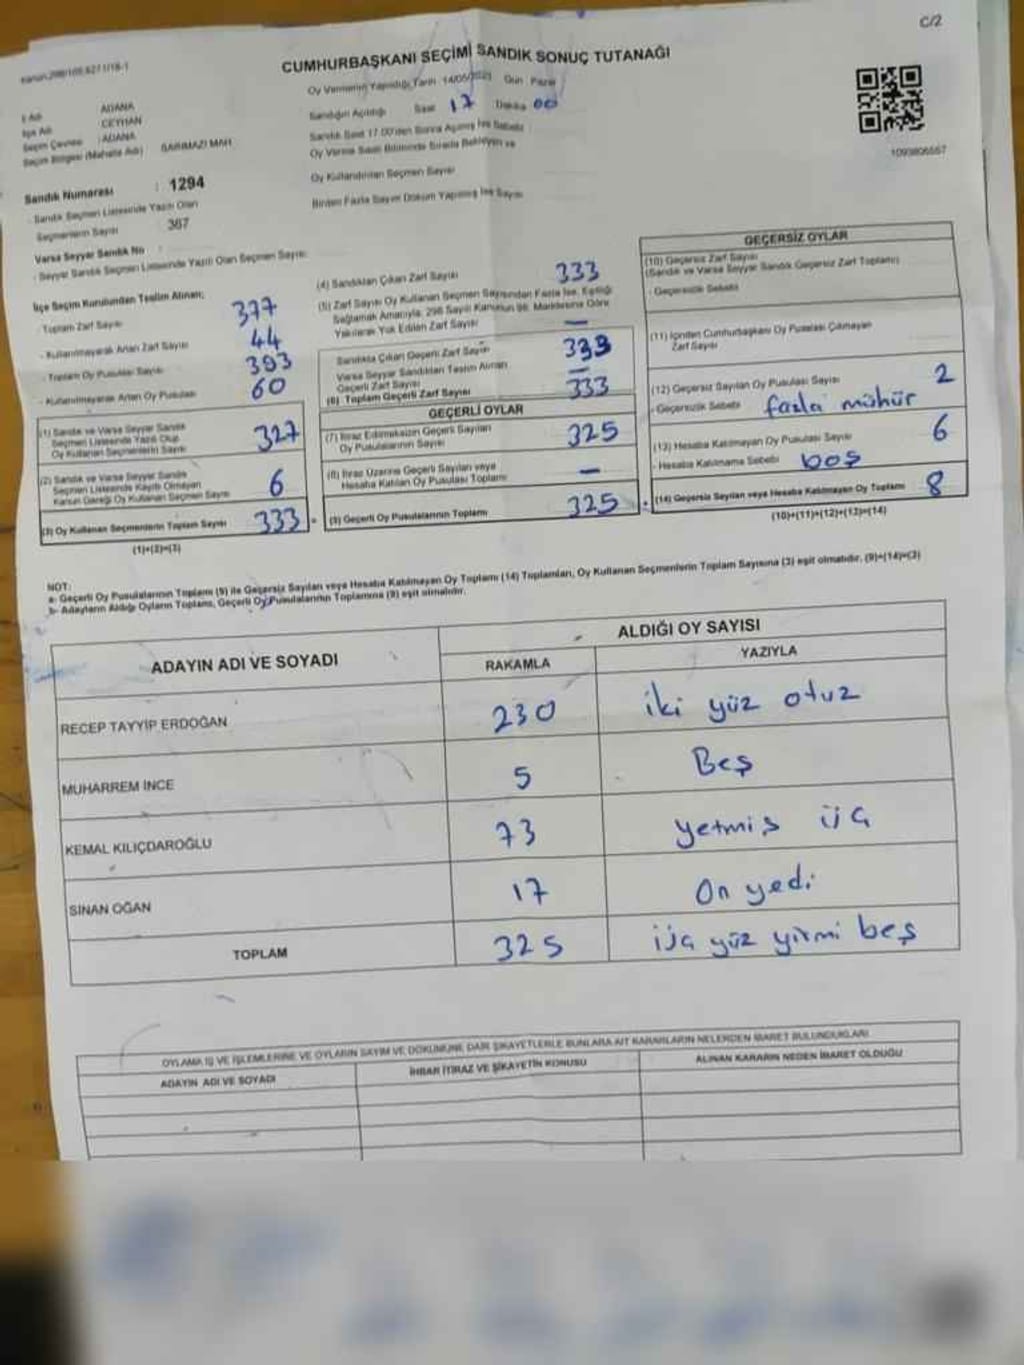 C/2
CUMHURBAŞKANI SEÇİMİ SANDIK SONUÇ TUTANAĞI
Oy Vermenin Yapıldığı Tarih 14/05/2023 Gün Pazar
Sandığın Açıldığı Saat 17 Dakika 00
Sandık Saat 17.00'den Sonra Açılmış İse Sebebi
Oy Verme Saati Bitiminde Sırada Bekleyen ve
Oy Kullandırılan Seçmen Sayısı
Birden Fazla Sayım Döküm Yapılmış İse Sayısı
1093806557
İl Adı ADANA
İlçe Adı CEYHAN
Seçim Çevresi : ADANA
Seçim Bölgesi (Mahalle Adı) SARIMAZI MAH.
Sandık Numarası : 1294
- Sandık Seçmen Listesinde Yazılı Olan
Seçmenlerin Sayısı 367
Varsa Seyyar Sandık No :
- Seyyar Sandık Seçmen Listesinde Yazılı Olan Seçmen Sayısı:
İlçe Seçim Kurulundan Teslim Alınan;
- Toplam Zarf Sayısı 377
- Kullanılmayarak Artan Zarf Sayısı 44
- Toplam Oy Pusulası Sayısı 393
- Kullanılmayarak Artan Oy Pusulası 60
(1) Sandık ve Varsa Seyyar Sandık
Seçmen Listesinde Yazılı Olup
Oy Kullanan Seçmenlerin Sayısı 327
(2) Sandık ve Varsa Seyyar Sandık
Seçmen Listesinde Kayıtlı Olmayan
Kanun Gereği Oy Kullanan Seçmen Sayısı 6
(3) Oy Kullanan Seçmenlerin Toplam Sayısı 333
(1)+(2)=(3)
(4) Sandıktan Çıkan Zarf Sayısı 333
(5) Zarf Sayısı Oy Kullanan Seçmen Sayısından Fazla İse, Eşitliği
Sağlamak Amacıyla, 298 Sayılı Kanunun 98. Maddesine Göre
Yakılarak Yok Edilen Zarf Sayısı —
Sandıkta Çıkan Geçerli Zarf Sayısı 333
Varsa Seyyar Sandıktan Teslim Alınan
Geçerli Zarf Sayısı —
(6) Toplam Geçerli Zarf Sayısı 333
GEÇERLİ OYLAR
(7) İtiraz Edilmeksizin Geçerli Sayılan
Oy Pusulalarının Sayısı 325
(8) İtiraz Üzerine Geçerli Sayılan veya
Hesaba Katılan Oy Pusulası Toplamı —
(9) Geçerli Oy Pusulalarının Toplamı 325
GEÇERSİZ OYLAR
(10) Geçersiz Zarf Sayısı
(Sandık ve Varsa Seyyar Sandık Geçersiz Zarf Toplamı)
- Geçersizlik Sebebi
(11) İçinden Cumhurbaşkanı Oy Pusulası Çıkmayan
Zarf Sayısı
(12) Geçersiz Sayılan Oy Pusulası Sayısı 2
- Geçersizlik Sebebi fazla mühür
(13) Hesaba Katılmayan Oy Pusulası Sayısı 6
- Hesaba Katılmama Sebebi boş
(14) Geçersiz Sayılan veya Hesaba Katılmayan Oy Toplamı 8
(10)+(11)+(12)+(13)=(14)
NOT:
a- Geçerli Oy Pusulalarının Toplamı (9) ile Geçersiz Sayılan veya Hesaba Katılmayan Oy Toplamı (14) Toplamları, Oy Kullanan Seçmenlerin Toplam Sayısına (3) eşit olmalıdır. (9)+(14)=(3)
b- Adayların Aldığı Oyların Toplamı, Geçerli Oy Pusulalarının Toplamına (9) eşit olmalıdır.
ADAYIN ADI VE SOYADI ALDIĞI OY SAYISI
RAKAMLA YAZIYLA
RECEP TAYYİP ERDOĞAN 230 iki yüz otuz
MUHARREM İNCE 5 Beş
KEMAL KILIÇDAROĞLU 73 yetmiş üç
SİNAN OĞAN 17 On yedi
TOPLAM 325 üç yüz yirmi beş
OYLAMA İŞ VE İŞLEMLERİNE VE OYLARIN SAYIM VE DÖKÜMÜNE DAİR ŞİKAYETLERLE BUNLARA AİT KARARLARIN NELERDEN İBARET BULUNDUKLARI
ADAYIN ADI VE SOYADI İHBAR İTİRAZ VE ŞİKAYETİN KONUSU ALINAN KARARIN NEDEN İBARET OLDUĞU